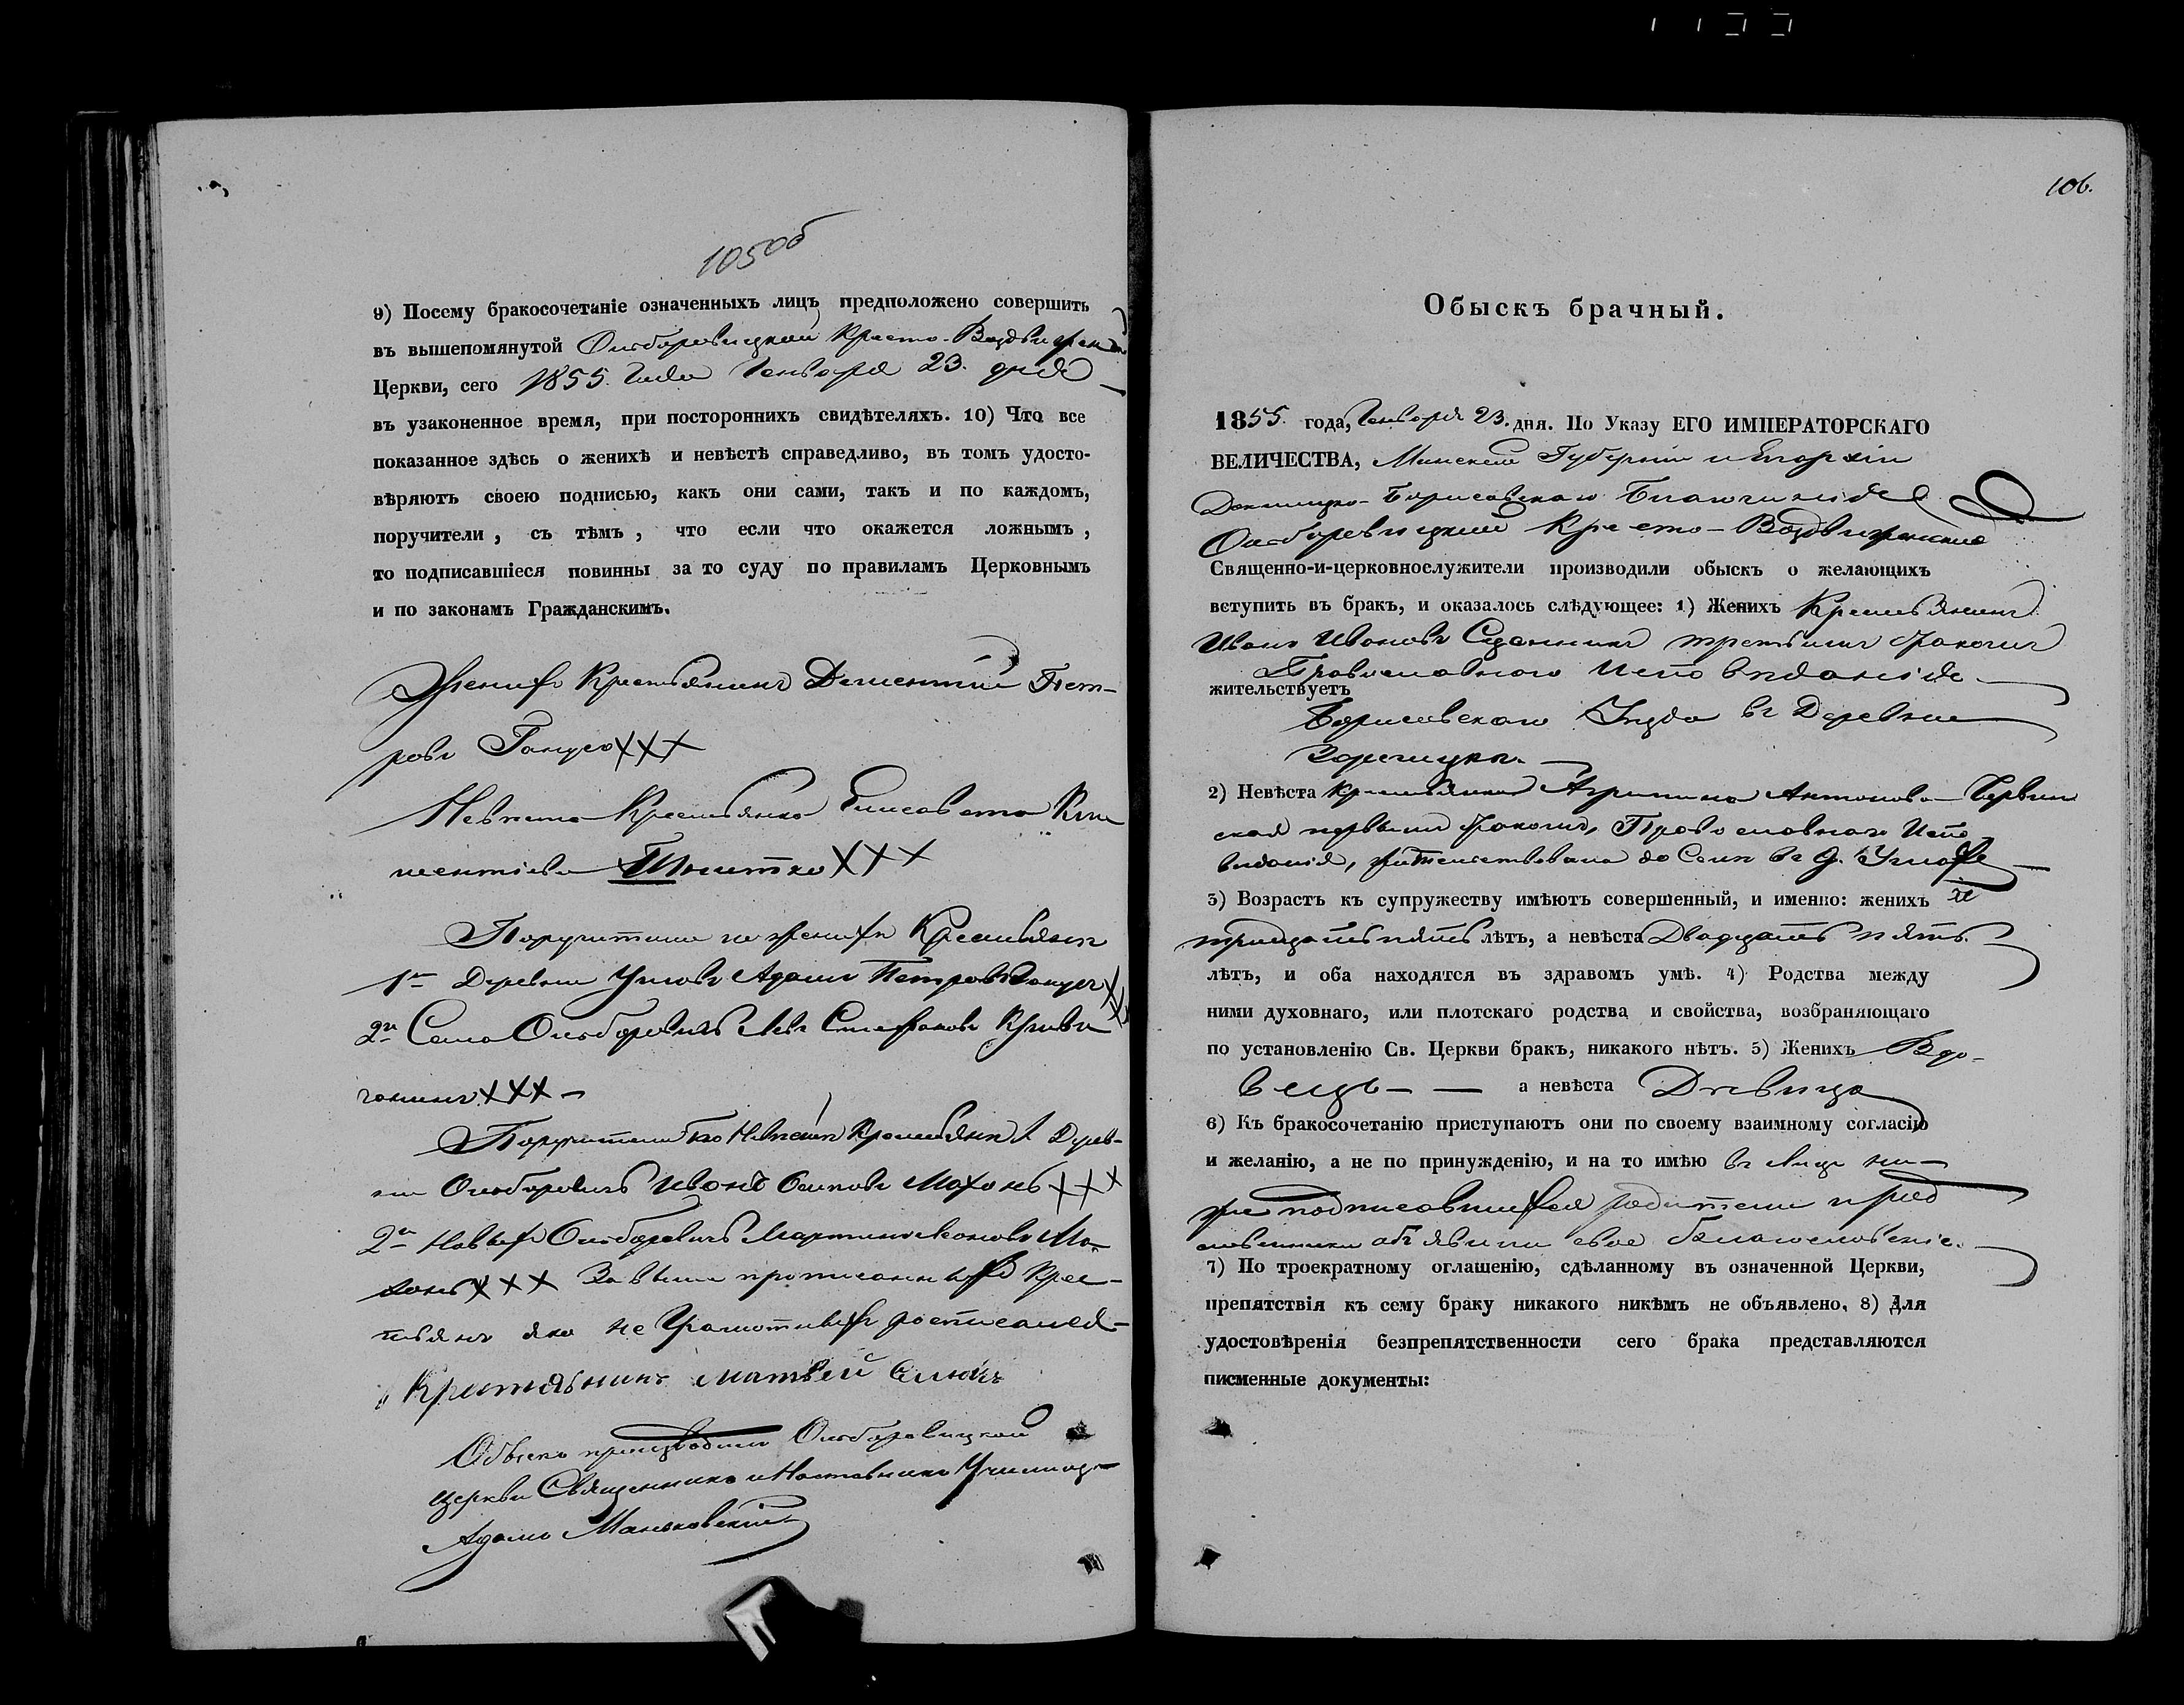 105об
9) Посему бракосочетаніе означенныхъ лицъ предположено совершить
въ вышепомянутой Ольборовицкой Кресто-Воздвижен
Церкви, сего 1855. Года Генваря 23. дня
въ узаконенное время, при постороннихъ свидѣтеляхъ. 10) Что все
показанное здѣсь о женихѣ и невѣстѣ справедливо, въ томъ удосто-
вѣряютъ своею подписью, какъ они сами, такъ и по каждомъ,
поручители, съ тѣмъ, что если что окажется ложнымъ,
то подписавшіеся повинны за то суду по правиламъ Церковнымъ
и по законамъ Гражданскимъ.
Женихъ Крестьянинъ Дементій Пет-
ровъ ХХХ
Невѣста Крестьянка Елисавета Кли
ментіева Шнитко ХХХ
Поручители по женихѣ Крестьяне
1й Деревни Адамъ Петровъ
2й Села Ольборовичъ Левъ Стефановъ Криви
чанинъ ХХХ
Поручители по Невѣстѣ Крестьяне 1 Дерев-
ни Ольборовичъ Иванъ Махонь ХХХ
2й Новыхъ Ольборовичъ Мартинъ Леоновъ Ма-
хонь ХХХ За выше прописанныхъ Крес-
тьянъ яко не Грамотныхъ росписался
Крестьянинъ Матвей
Обыскъ производилъ Ольборовицкой
церкви Священникъ и Наставникъ Училища
Адамъ Маньковскій
106.
Обыскъ брачный.
1855 года, Генваря 23. дня. По Указу ЕГО ИМПЕРАТОРСКАГО
ВЕЛИЧЕСТВА, Минской Губерніи и Епархіи
Докшицко-Борисовскаго Благочинія
Ольборовицкой Кресто-Воздвиженской
Священно-и-церковнослужители производили обыскъ о желающихъ
вступить въ бракъ, и оказалось слѣдующее: 1) Женихъ Крестьянинъ
Иванъ Ивановъ третьимъ бракомъ
Православнаго Исповѣданія
жительствуетъ
Борисовскаго Уѣзда въ Деревни
Заречицкъ.
2) Невѣста Крестьянка Агрипина Антонова
ская первымъ бракомъ, Православнаго Испо
вѣданія, жительствовала до Селѣ въ д.
3) Возрастъ къ супружеству имѣютъ совершенный, и именно: женихъ
тридцать пять лѣтъ, а невѣста Двадцать пять
лѣтъ, и оба находятся въ здравомъ умѣ. 4) Родства между
ними духовнаго, или плотскаго родства и свойства, возбраняющаго
по установленію Св. Церкви бракъ, никакого нѣтъ. 5) Женихъ Вдо-
вецъ — — а невѣста Дѣвица
6) Къ бракосочетанію приступаютъ они по своему взаимному согласію
и желанію, а не по принужденію, и на то имѣю въ лицѣ ни-
же подписавшихся родители и род
ственники объявили свое благословеніе.
7) По троекратному оглашенію, сдѣланному въ означенной Церкви,
препятствія къ сему браку никакого никѣмъ не объявлено. 8) Для
удостовѣренія безпрепятственности сего брака представляются
писменные документы: